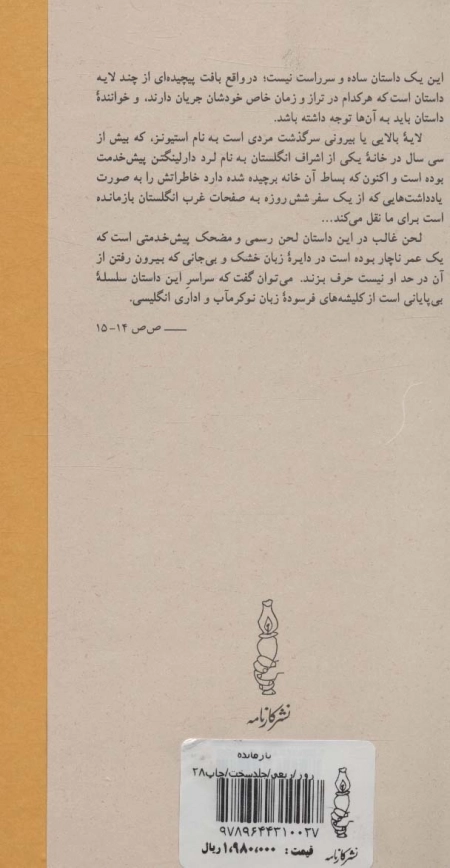 این یک داستان ساده و سرراست نیست؛ در واقع بافت پیچیده‌ای از چند لایه
داستان است که هرکدام در تراز و زمان خاص خودشان جریان دارند، و خوانندهٔ
داستان باید به آن‌ها توجه داشته باشد.
لایهٔ بالایی یا بیرونی سرگذشت مردی است به نام استیونز، که بیش از
سی سال در خانهٔ یکی از اشراف انگلستان به نام لرد دارلینگتن پیش‌خدمت
بوده است و اکنون که بساط آن خانه برچیده شده دارد خاطراتش را به صورت
یادداشت‌هایی که از یک سفر شش روزه به صفحات غرب انگلستان بازمانده
است برای ما نقل می‌کند...
لحن غالب در این داستان لحن رسمی و مضحک پیش‌خدمتی است که
یک عمر ناچار بوده است در دایرهٔ زبان خشک و بی‌جانی که بیرون رفتن از
آن در حد او نیست حرف بزند. می‌توان گفت که سراسر این داستان سلسلهٔ
بی‌پایانی است از کلیشه‌های فرسودهٔ زبان نوکرمآب و اداری انگلیسی.
—— ص‌ص ۱۴-۱۵
نشر کارنامه
بازمانده
روز/رقعی/جلدسخت/چاپ۲۸
۹۷۸۹۶۴۴۳۱۰۰۳۷
قیمت: ۱،۹۸۰،۰۰۰ ریال
نشر کارنامه